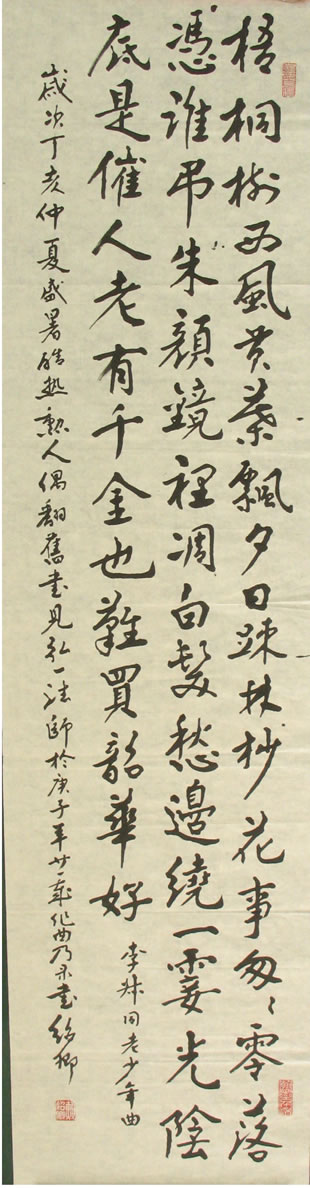 梧桐树西风黄叶飘夕日疎林杪花事匆々零落
憑谁吊朱颜鏡裡凋白髮愁邊繞一霎光陰
底是催人老有千金也難買韶華好
李叔同老少年曲
歲次丁亥仲夏盛暑酷热熏人偶翻舊書見弘一法師於庚子年廿一歲作曲乃录書